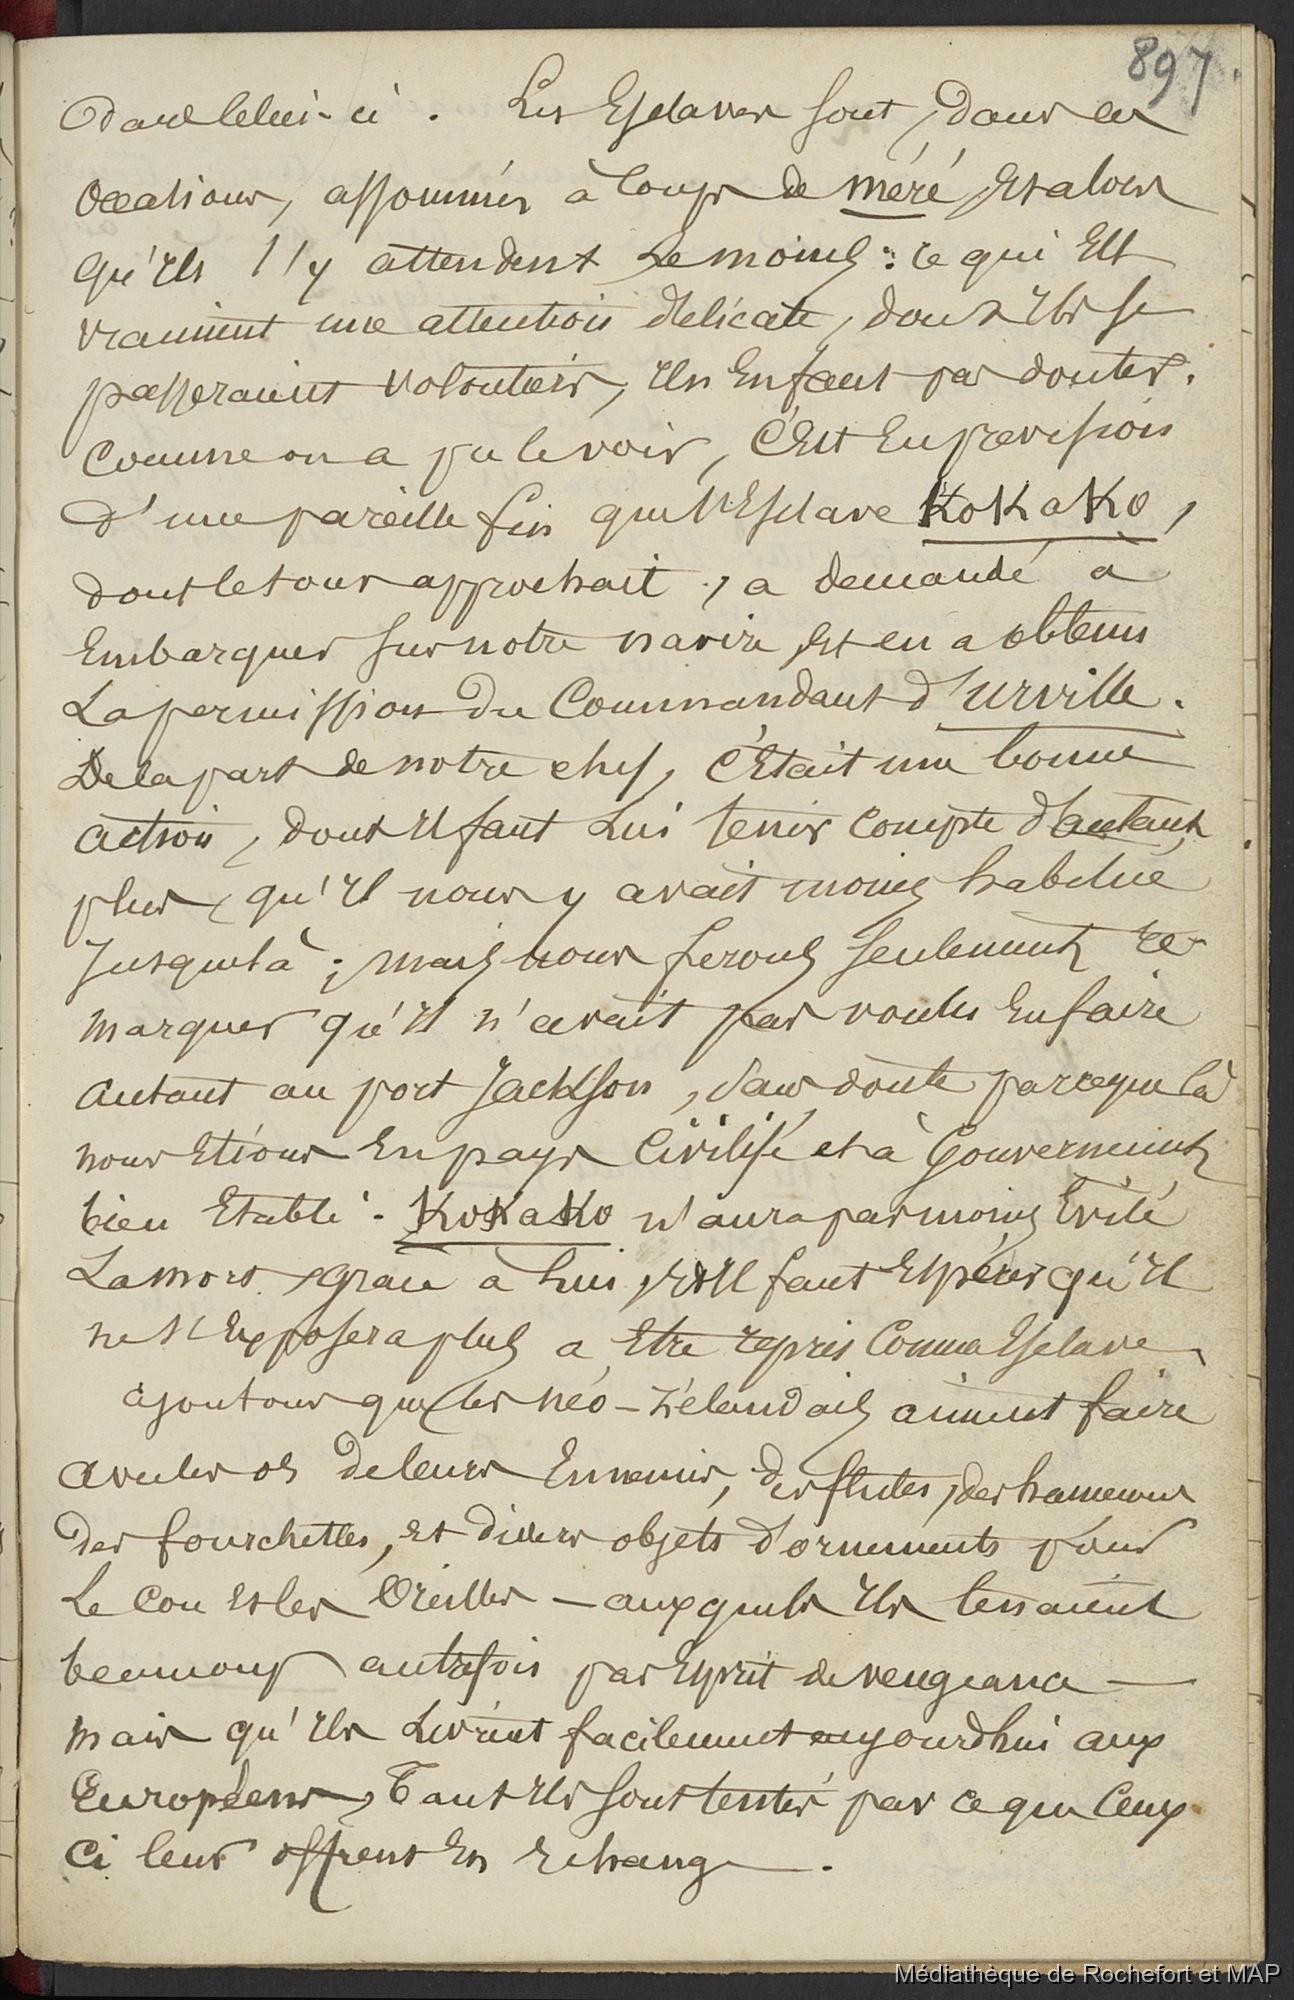 897.
dans celui-ci. Les Esclaves sont, dans ces
occasions, assommés à coups de méré, Et alors
qu'ils s'y attendent Le moins: ce qui Est
vraiment une attention délicate, dont ils se
passeraient volontiers, il n'en faut pas douter.
Comme on a pu le voir, C'Est En prevision
d'une pareille fin que l'Esclave KoKaKo,
dont le tour approchait, a demandé à
Embarquer sur notre navire, Et en a obtenu
La permission du Commandant d'Urville.
De la part de notre chef, c'Etait une bonne
action, dont il faut Lui tenir compte d'autant
plus, qu'il nous y avait moins habitué
Jusque là; mais nous ferons seulement re-
marquer qu'il n'avait pas voulu En faire
autant au port Jackson, sans doute parceque là
nous Etions En pays Civilisé et à Gouvernement
bien Etabli. KoKaKo n'aura pas moins Evité
La mort, grace à lui, Et Il faut Espérer qu'il
ne s'Exposera plus a Etre repris Comme Esclave.
ajoutons que les néo-Zélandais aiment faire
avec les os de leurs Ennemis, des flutes, des hameçons
des fourchettes, Et divers objets d'ornements pour
Le Cou Et les Oreilles — auxquels ils tenaient
beaucoup autrefois par Esprit de vengeance —
mais qu'ils Livrent facilement aujourdhui aux
Européens, Tant ils sont tentés par ce que Ceux
ci leur offrent En Echange.
Médiathèque de Rochefort et MAP